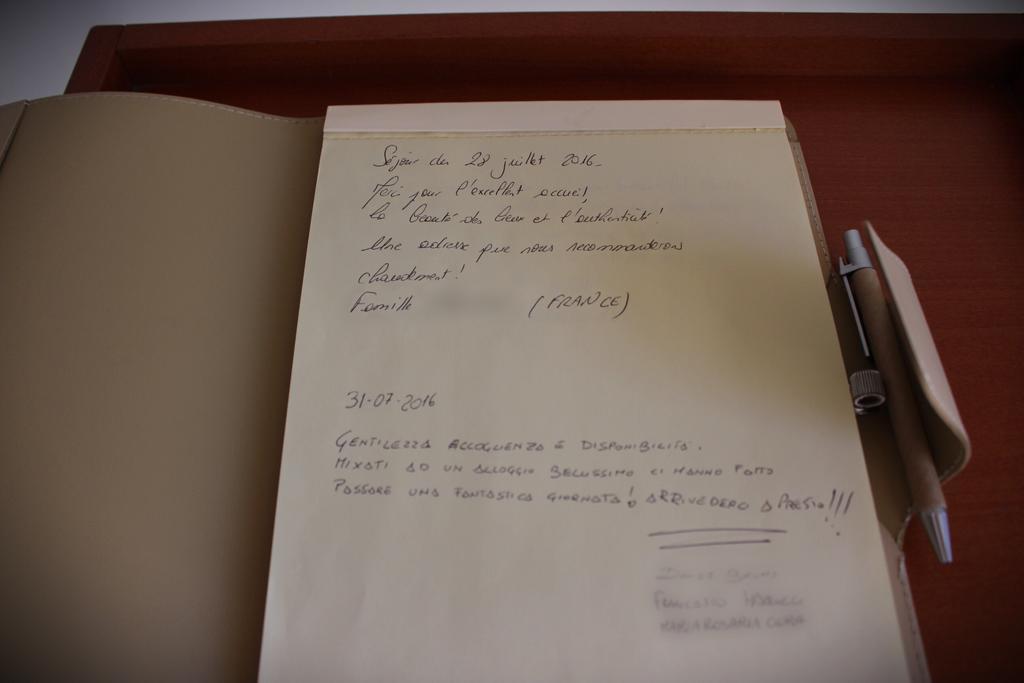 Séjour du 28 juillet 2016-
Merci pour l'excellent accueil,
la beauté des lieux et l'authenticité!
Une adresse que nous recommanderons
chaudement!
Famille (FRANCE)
31-07-2016
GENTILEZZA ACCOGLIENZA E DISPONIBILITÀ.
MIXATI AD UN ALLOGGIO BELLISSIMO CI HANNO FATTO
PASSARE UNA FANTASTICA GIORNATA! ARRIVEDERCI A PRESTO!!!